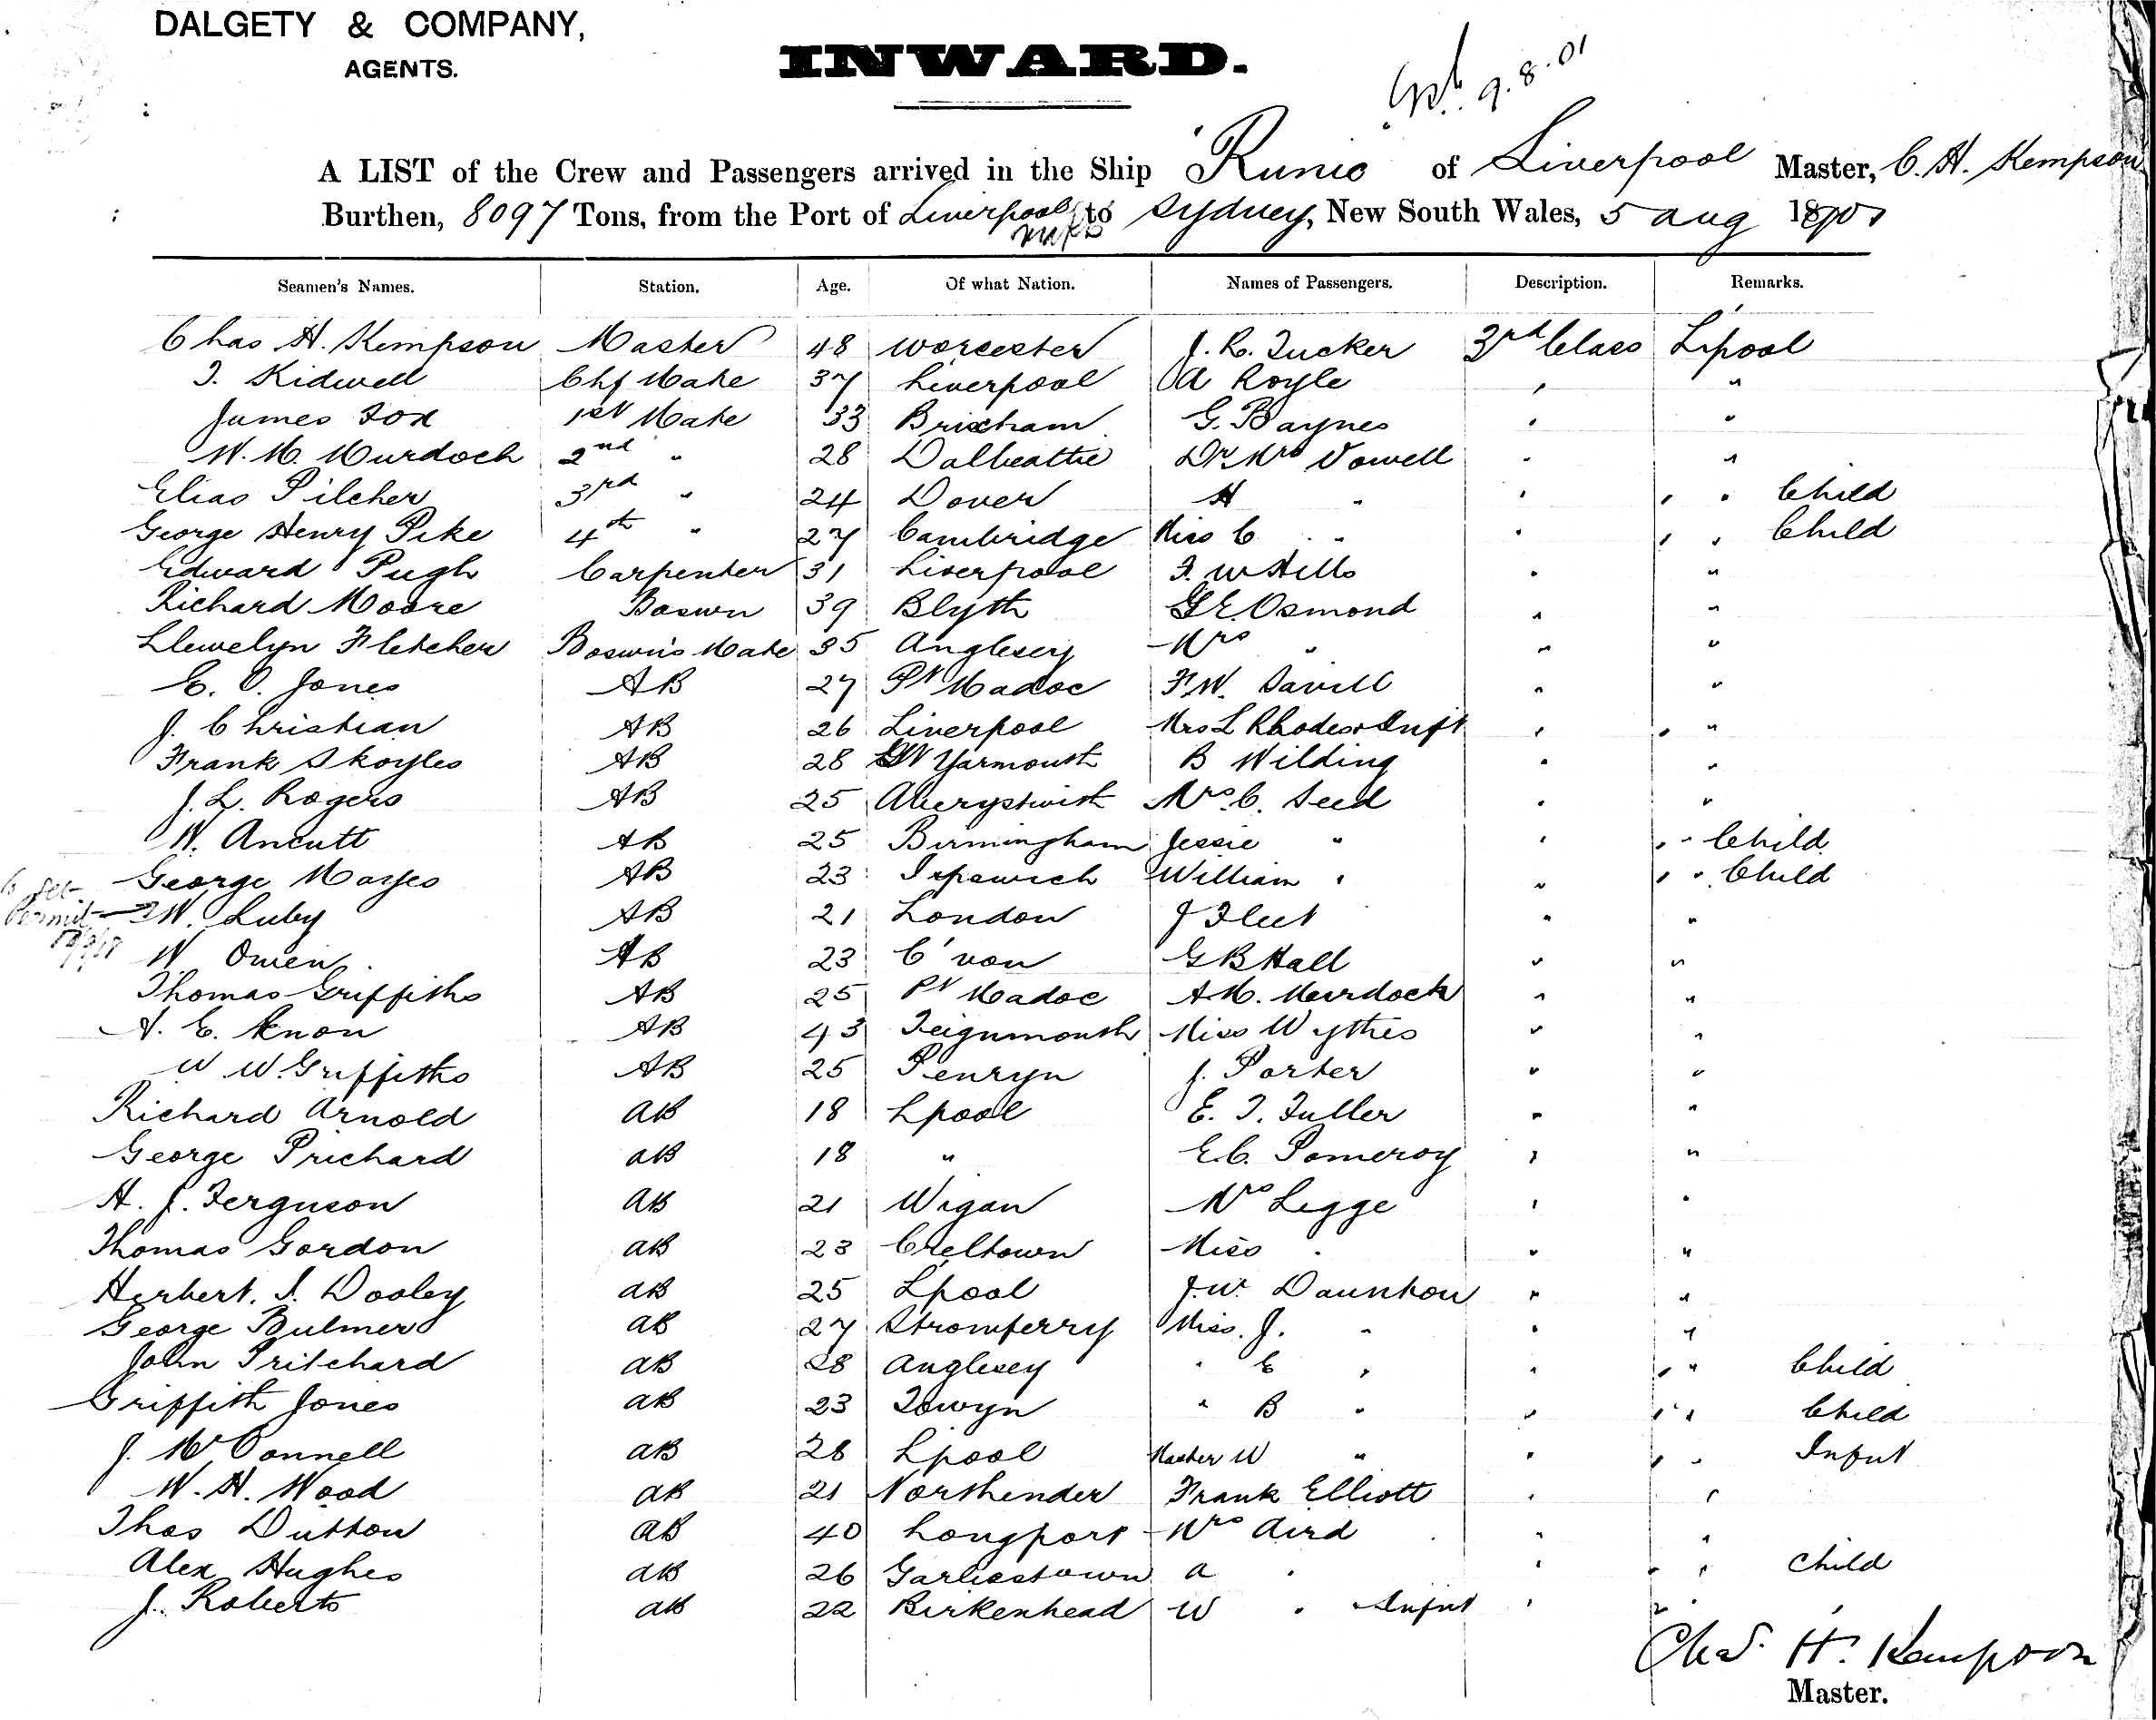 DALGETY & COMPANY,
AGENTS.
INWARD.
9.8.01
A LIST of the Crew and Passengers arrived in the Ship "Runic of Liverpool Master, C. H. Kempson
Burthen, 8097 Tons, from the Port of Liverpool to Sydney, New South Wales, 5 Aug 1901
Seamen's Names. Station. Age. Of what Nation. Names of Passengers. Description. Remarks.
Chas H. Kempson Master 48 Worcester J. R. Tucker 3rd Class Lpool
J. Kidwell Chf Mate 37 Liverpool A Royle " "
James Fox 1st Mate 33 Brixham G. Baynes " "
W. M. Murdoch 2nd " 28 Dalbeattie Dr Mrs Vowell " "
Elias Pilcher 3rd " 24 Dover H " " " " Child
George Henry Pike 4th " 27 Cambridge Miss C " " " " Child
Edward Pugh Carpenter 31 Liverpool F. W Hills " "
Richard Moore Boswn 39 Blyth G E. Osmond " "
Llewelyn Fletcher Boswn's Mate 35 Anglesey Mrs " " "
E. O. Jones AB 27 Pt Madoc F. W. Savill " "
J. Christian AB 26 Liverpool Mrs L Rhodes + Inft " " "
Frank Skoyles AB 28 Gt Yarmouth B Wilding " "
J. L. Rogers AB 25 Aberystwith Mrs C. Seed " "
W. Ancutt AB 25 Birmingham Jessie " " " " Child
George Mayes AB 23 Ipswich William " " " " Child
Permit W. Luby AB 21 London J Fleet " "
W Owen AB 23 C'von G B Hall " "
Thomas Griffiths AB 25 Pt Madoc A M. Murdock " "
A. E. Knon AB 43 Teignmouth Miss Wythes " "
W W. Griffiths AB 25 Penryn J. Porter " "
Richard Arnold AB 18 Lpool E. J. Fuller " "
George Prichard AB 18 " E. C. Pomeroy " "
H. J. Ferguson AB 21 Wigan Mrs Legge " "
Thomas Gordon AB 23 Creltown Miss " " "
Herbert. S. Dooley AB 25 Lpool J. W. Daunton " "
George Bulmer AB 27 Stromferry Miss. J. " " "
John Pritchard AB 28 Anglesey " E " " " " Child
Griffith Jones AB 23 Towyn " B " " " " Child
J. McConnell AB 28 Lpool Master W " " " " Infnt
W. H. Wood AB 21 Northender Frank Elliott " "
Thos Dutton AB 40 Longport Mrs Aird " "
Alex Hughes AB 26 Garliestown A " " " " Child
J. Roberts AB 22 Birkenhead W " Infnt " " "
Chas. H. Kempson
Master.